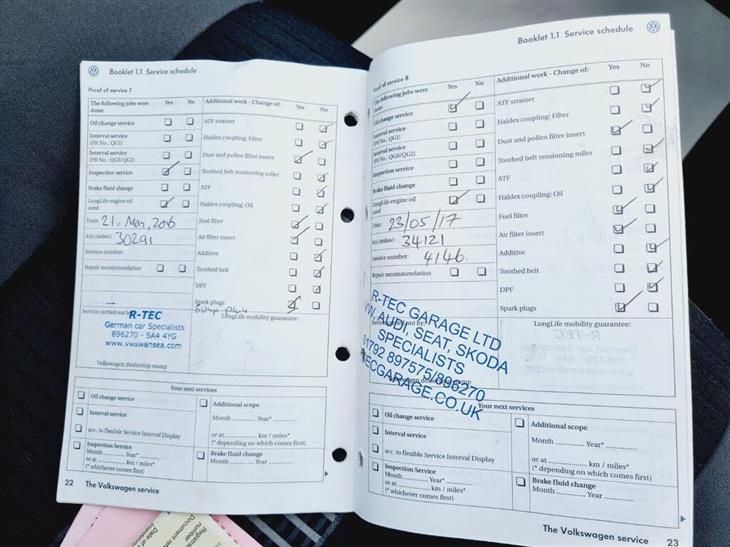 Booklet 1.1 Service schedule
Proof of service 7
The following jobs were done: Yes No
Additional work - Change of: Yes No
Oil change service
Interval service (PR No.: QG1)
Interval service (PR No.: QG0/QG2)
Inspection service
Brake fluid change
LongLife engine oil used
Date: 21. May, 2016
km (miles): 30291
Invoice number
Repair recommendation
ATF strainer
Haldex coupling: Filter
Dust and pollen filter insert
Toothed belt tensioning roller
ATF
Haldex coupling: Oil
Fuel filter
Air filter insert
Additive
Toothed belt
DPF
Spark plugs
Sump plug
Service carried out by:
R-TEC
German car Specialists
896270 - SA4 4YG
www.vwswansea.com
Volkswagen dealership stamp
LongLife mobility guarantee:
Your next services
Oil change service
Interval service
acc. to flexible Service Interval Display
Inspection Service
Month ........ Year* ........
or at ........ km / miles*
(* whichever comes first)
Additional scope
Month ........ Year* ........
or at ........ km / miles*
(* depending on which comes first)
Brake fluid change
Month ........ Year ........
22 The Volkswagen service
Booklet 1.1 Service schedule
Proof of service 8
The following jobs were done: Yes No
Additional work - Change of: Yes No
Oil change service
Interval service (PR No.: QG1)
Interval service (PR No.: QG0/QG2)
Inspection service
Brake fluid change
LongLife engine oil used
Date: 23/05/17
km (miles): 34121
Invoice number: 4146.
Repair recommendation
ATF strainer
Haldex coupling: Filter
Dust and pollen filter insert
Toothed belt tensioning roller
ATF
Haldex coupling: Oil
Fuel filter
Air filter insert
Additive
Toothed belt
DPF
Spark plugs
R-TEC GARAGE LTD
VW, AUDI, SEAT, SKODA
SPECIALISTS
01792 897575/896270
LongLife mobility guarantee:
Your next services
Oil change service
Interval service
acc. to flexible Service Interval Display
Inspection Service
Month ........ Year* ........
or at ........ km / miles*
(* whichever comes first)
Additional scope
Month ........ Year* ........
or at ........ km / miles*
(* depending on which comes first)
Brake fluid change
Month ........ Year ........
The Volkswagen service 23